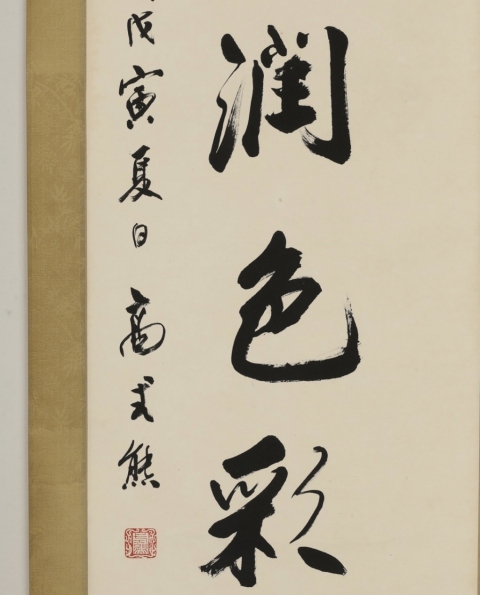 潤色彩
戊寅夏日 高式熊